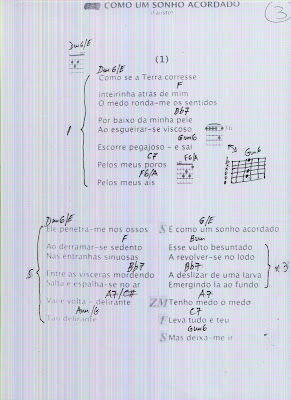 COMO UM SONHO ACORDADO
(Fausto)
3
(1)
Dm6/E
Dm6/E
Como se a Terra corresse
F
Inteirinha atrás de mim
O medo ronda-me os sentidos
Bb7
Por baixo da minha pele
Ao esgueirar-se viscoso
Gm6
Escorre pegajoso - e sai
C7
Pelos meus poros
F6/A
Pelos meus ais
F6/A
Gm6
Dm6/E
Ele penetra-me nos ossos
F
Ao derramar-se sedento
Nas entranhas sinuosas
Bb7
Entre as vísceras mordendo
Salta e espalha-se no ar
A7/C#
Vai e volta - delirante
Tão delirante
S
G/E
E como um sonho acordado
Esse vulto besuntado
A revolver-se no lodo
Bb7
A deslizar de uma larva
Emergindo lá ao fundo
A7
ZM Tenho medo ó medo
C7
F Leva tudo é teu
Gm6
S Mas deixa-me ir